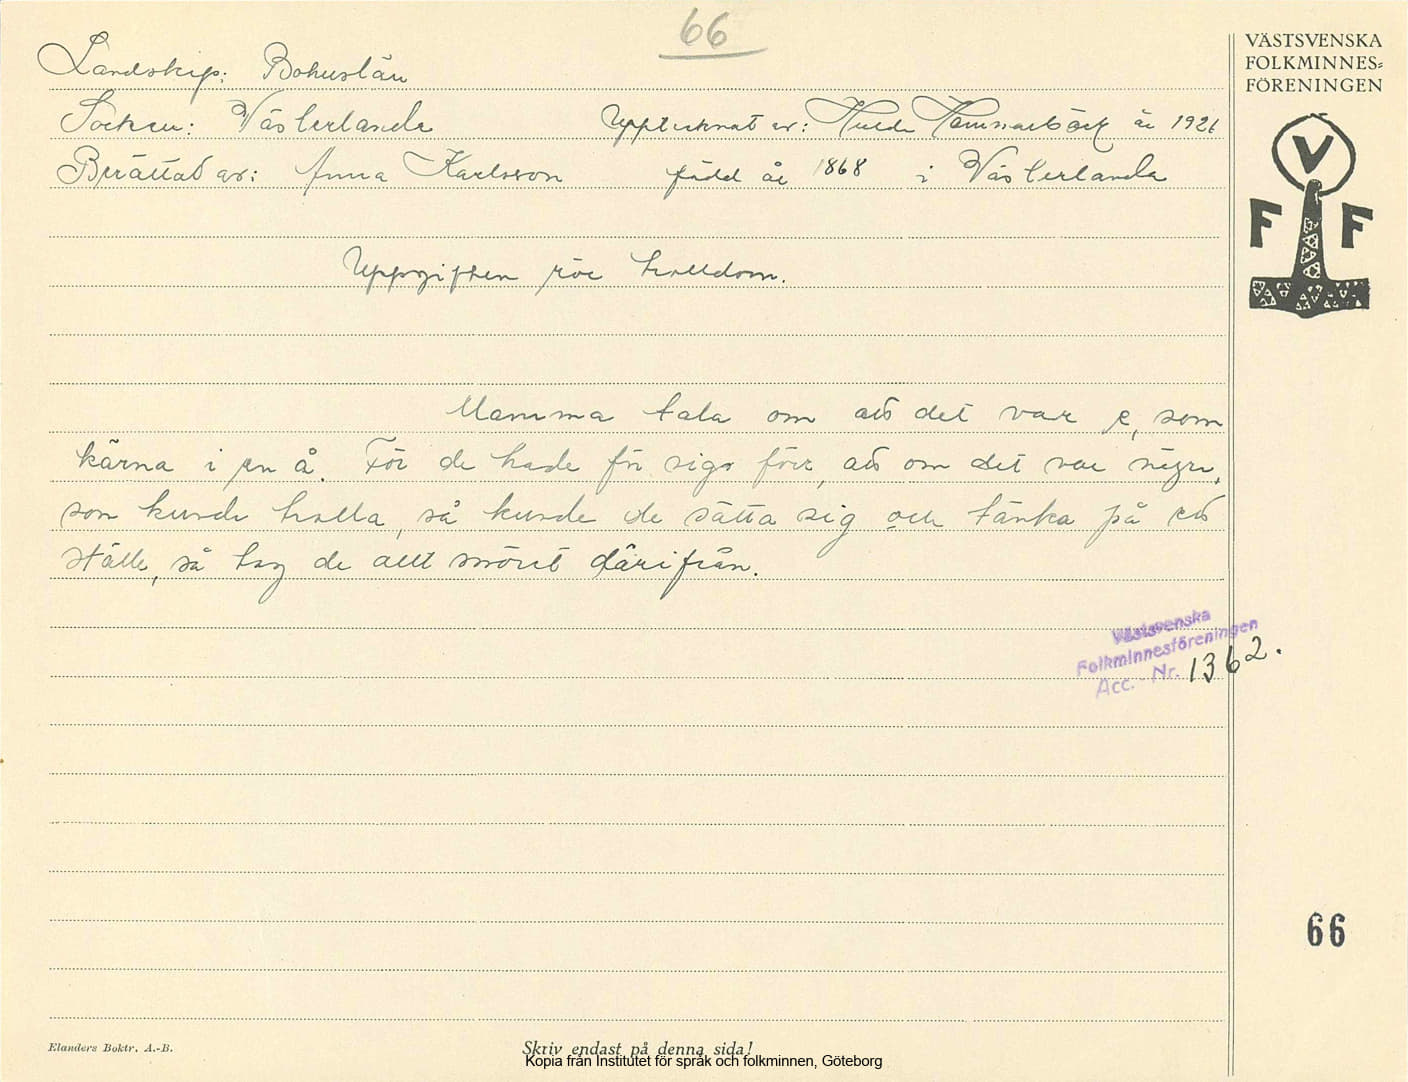 66
VÄSTSVENSKA
FOLKMINNES=
FÖRENINGEN
Landskap: Bohuslän
Socken: Västerlanda Upptecknat av: Hulda Hammarbäck år 1926
Berättat av: Anna Karlsson född år 1868 i Västerlanda
V
F F
Uppgiften rör trolldom.
Mamma tala om att det var e, som
kärna i en å. För de hade för sig förr, att om det var några,
som kunde trolla, så kunde de sätta sig och tänka på ett
ställe, så tog de allt smöret därifrån.
Västsvenska
Folkminnesföreningen
Acc. Nr. 1362.
66
Elanders Boktr. A.-B.
Skriv endast på denna sida!
Kopia från Institutet för språk och folkminnen, Göteborg